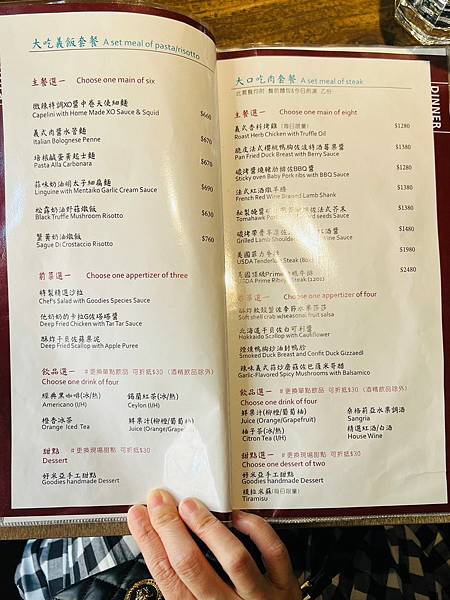 大吃義飯套餐 A set meal of pasta/risotto
主餐選一 Choose one main of six
微辣特調XO醬中卷天使細麵 $660
Capelini with Home Made XO Sauce & Squid
義式肉醬水管麵 $670
Italian Bolognese Penne
培根鹹蛋黃起士麵 $670
Pasta Alla Carbonara
蒜味奶油明太子細扁麵 $690
Linguine with Mentaiko Garlic Cream Sauce
松露奶油野菇燉飯 $630
Black Truffle Mushroom Risotto
蟹黃奶油燉飯 $760
Sague Di Crostaccio Risotto
前菜選一 Choose one appertizer of three
特製精選沙拉
Chef's Salad with Goodies Species Sauce
他奶奶的卡拉G佐塔塔醬
Deep Fried Chicken with Tar Tar Sauce
酥炸干貝佐蘋果泥
Deep Fried Scallop with Apple Puree
飲品選一 #更換單點飲品 可折抵$30 (酒精飲品除外)
Choose one drink of four
經典黑咖啡(冰/熱) 錫蘭紅茶(冰/熱)
Americano (I/H) Ceylon (I/H)
橙香冰茶 鮮果汁(柳橙/葡萄柚)
Orange Iced Tea Juice (Orange/Grape
甜點 #更換現場甜點 可折抵$30
Dessert
好米亞手工甜點
Goodies handmade Dessert
DINNER
大口吃肉套餐 A set meal of steak
主餐選一 Choose one main of eight
義式香料烤雞 (每日限量) $1280
Roast Herb Chicken with Truffle Oil
脆皮法式櫻桃鴨胸佐波特酒莓果醬 $1380
Pan Fried Duck Breast with Berry Sauce
碳烤醬燒豬肋排佐BBQ醬 $1180
Sticky oven Baby Pork ribs with BBQ Sauce
法式紅酒燉羊膝 $1380
French Red Wine Braised Lamb Shank
$1380
Tomahawk Pork seeds Sauce
$1480
Grilled Lamb Shoulder Wine Sauce
美國菲力牛排 $1980
USDA Tenderloin Steak
美國頂級Prime肋眼牛排 $2480
USDA Prime Ribeye Steak (12oz)
前菜選一 Choose one appertizer of four
酥炸軟殼蟹佐季節水果莎莎
Soft shell crab w/seasonal fruit salsa
北海道干貝佐白可利醬
Hokkaido Scallop with Caulilower
煙燻鴨胸炒油封鴨胗
Smoked Duck Breast and Confit Duck Gizzaedl
辣味義式蒜炒蘑菇佐巴薩米哥醋
Garlic-Flavored Spicy Mushrooms with Balsamico
飲品選一 #更換單點飲品 可折抵$30 (酒精飲品除外)
Choose one drink of four
鮮果汁(柳橙/葡萄柚) 桑格莉亞水果調酒
Juice (Orange/Grapefruit) Sangria
柚子茶(冰/熱) 精選紅酒/白酒
Citron Tea (I/H) House Wine
甜點選一 #更換現場甜點 可折抵$30
Choose one dessert of two
好米亞手工甜點
Goodies handmade Dessert
提拉米蘇(每日限量)
Tiramisu